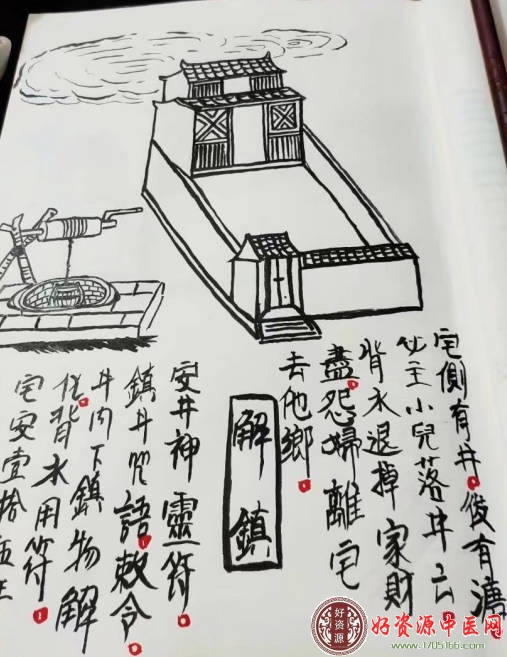 宅側有井俊有溝
必主小兒落井亡
背水退掉家財
盡怨婦離宅
去他鄉
解鎮
安井神靈符
鎮井咒語敕令
井內下鎮物解
化背水用符
宅安壹拾
好资源中医网
www.1705166.com
好资源